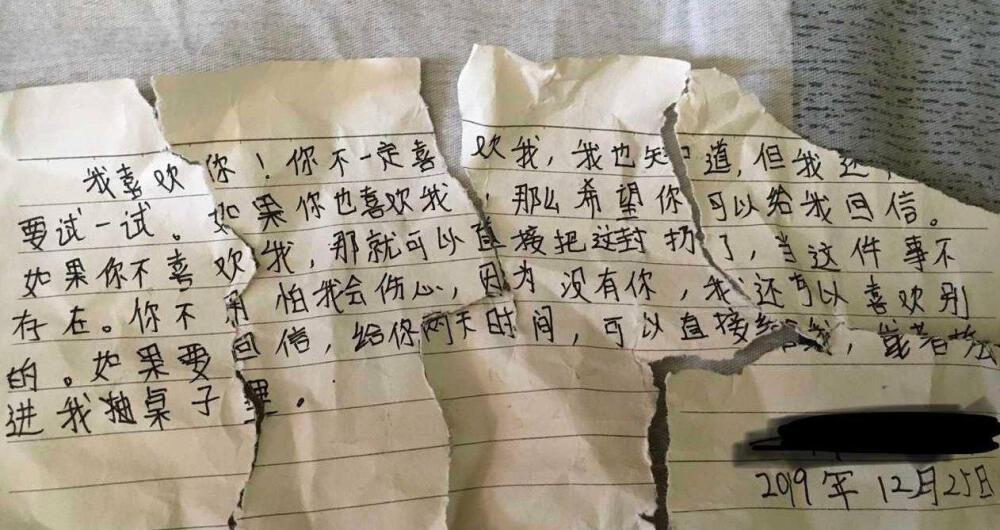 我喜欢你！你不一定喜欢我，我也知道，但我还
要试一试。如果你也喜欢我，那么希望你可以给我回信。
如果你不喜欢我，那就可以直接把这封扔了，当这件事不
存在。你不用怕我会伤心，因为没有你，我还可以喜欢别
的。如果要回信，给你两天时间，可以直接给我，或者放
进我抽桌子里。
2019年12月25日